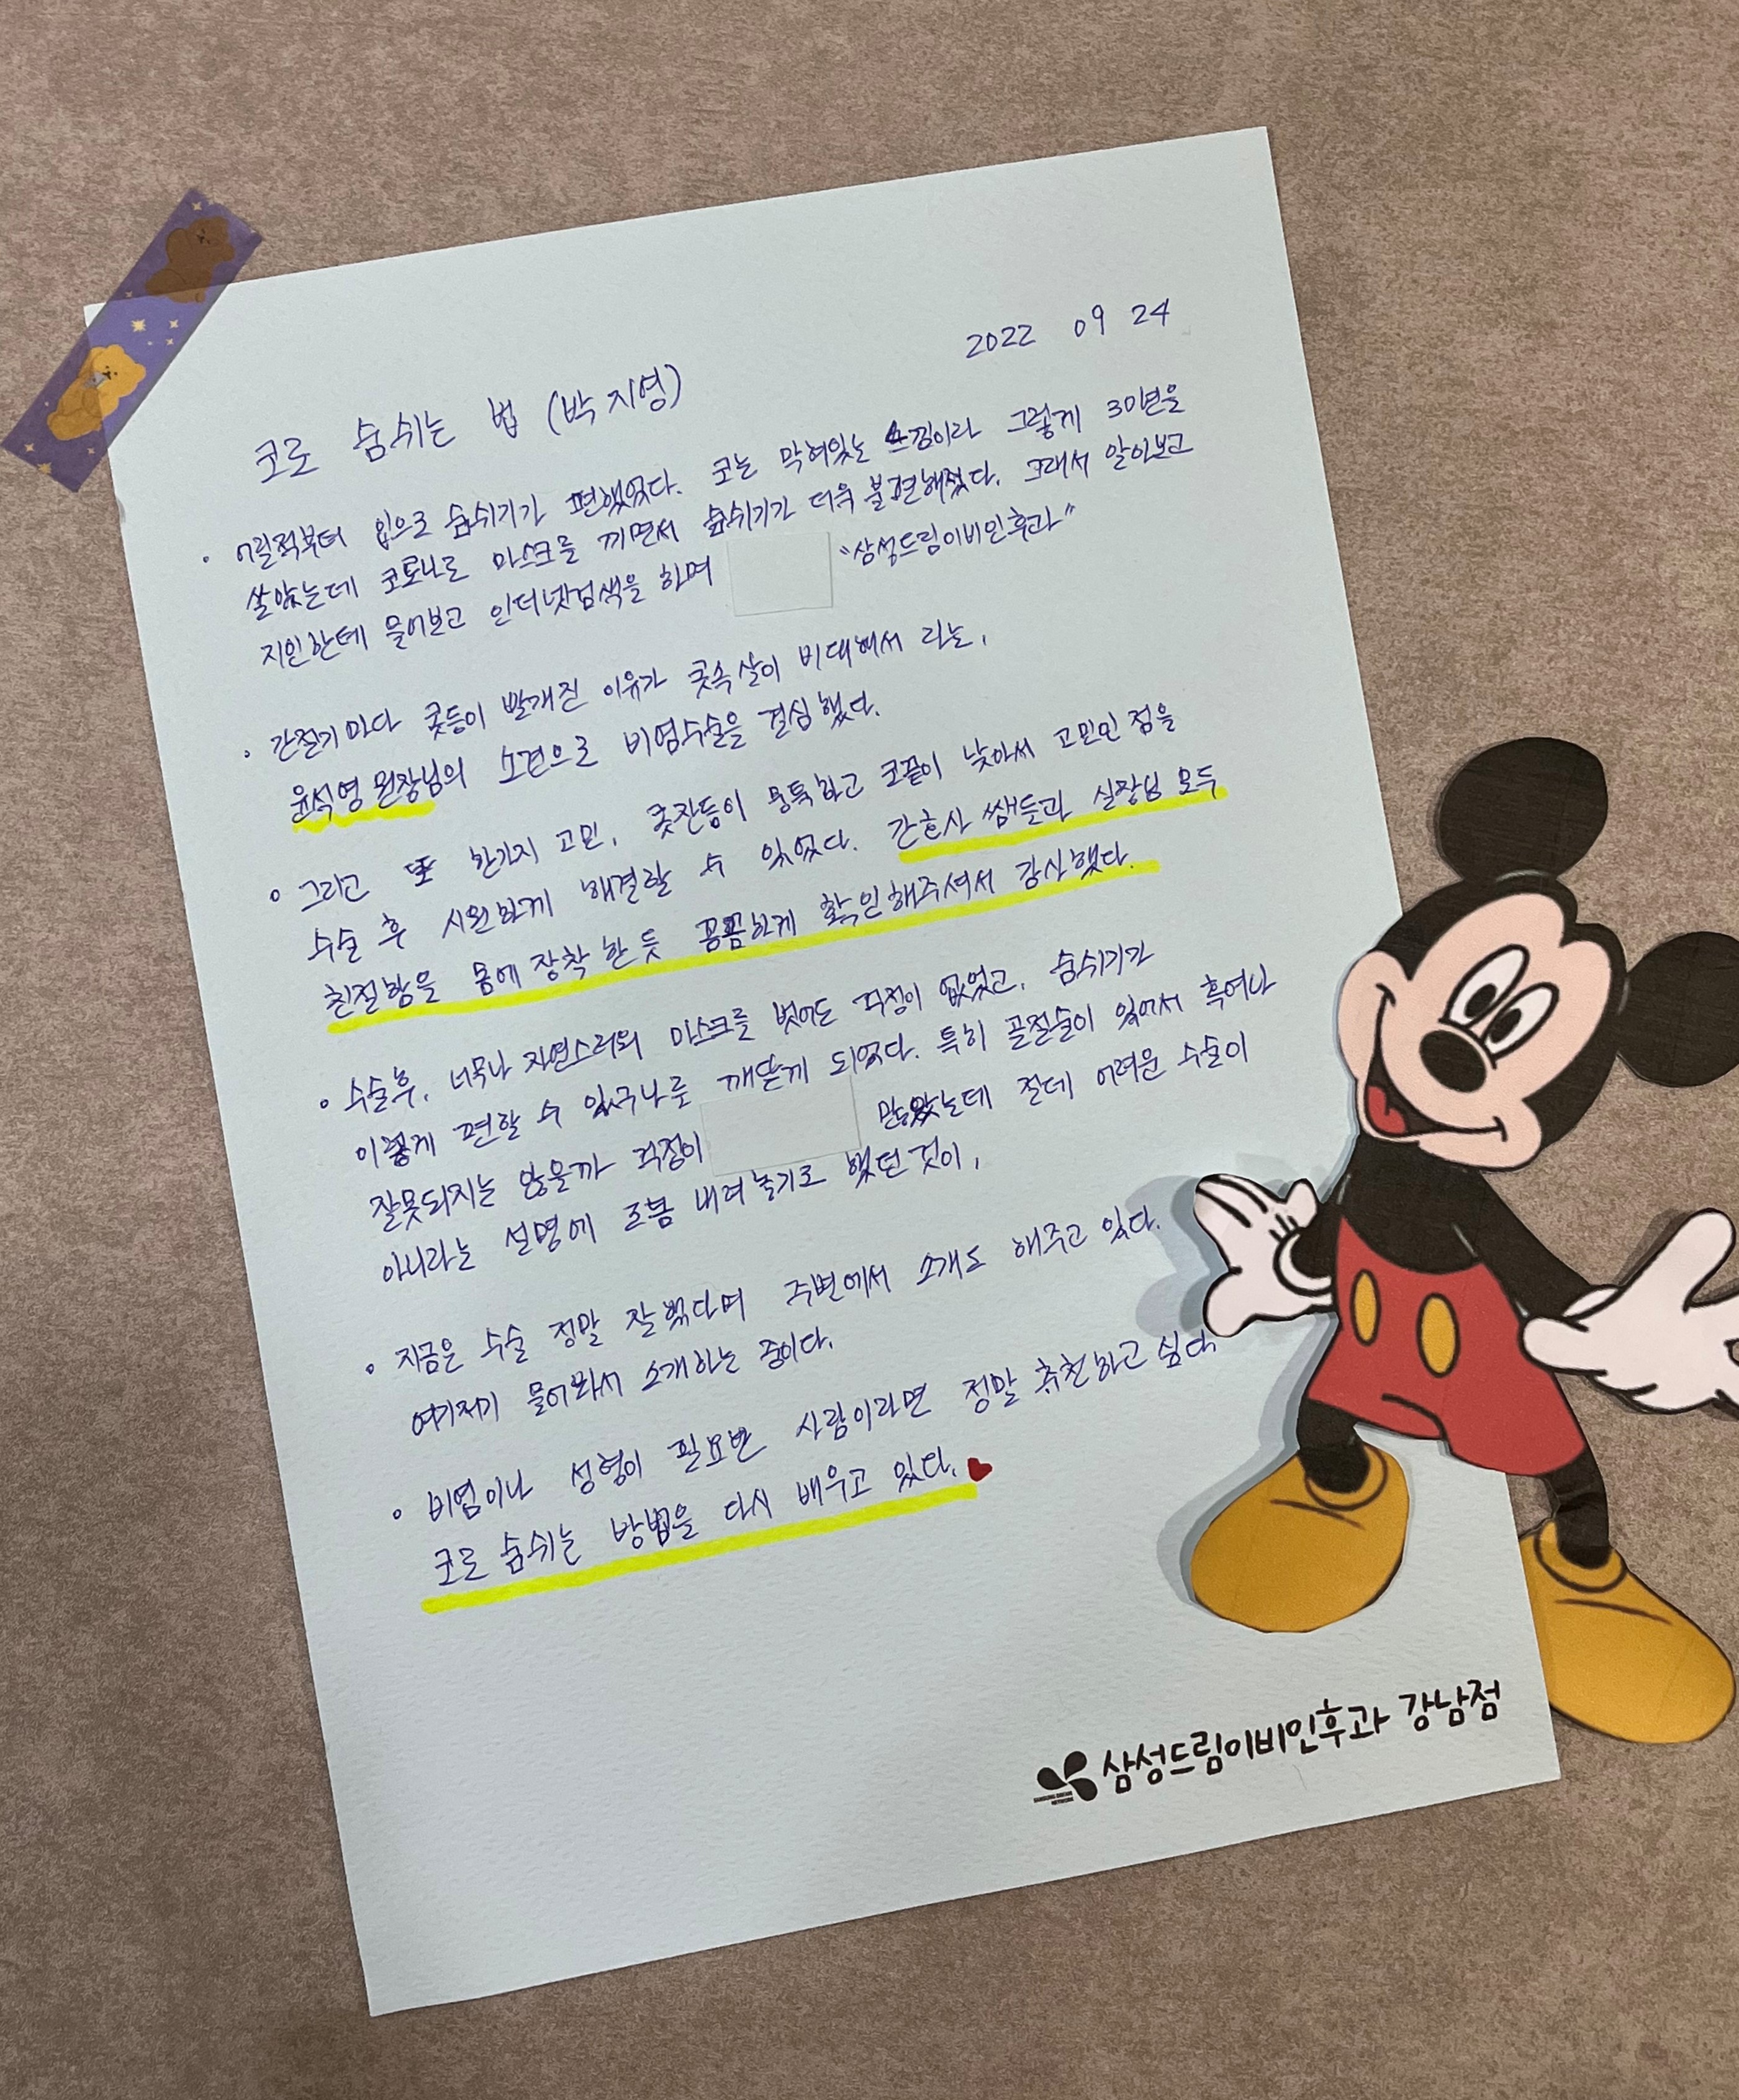 2022 09 24
코로 숨쉬는 법 (박지영)
· 어릴적부터 입으로 숨쉬기가 편했었다. 코는 막혀있는 느낌이라 그렇게 30년을
살았는데 코로나로 마스크를 끼면서 숨쉬기가 더욱 불편해졌다. 그래서 알아보고
지인한테 물어보고 인터넷검색을 하며 "삼성드림이비인후과"
· 간절기마다 콧등이 빨개진 이유가 콧속살이 비대해서 라는,
윤석영 원장님의 소견으로 비염수술을 결심했다.
· 그리고 또 한가지 고민, 콧잔등이 뭉툭하고 코끝이 낮아서 고민인 점을
수술 후 시원하게 해결할 수 있었다. 간호사 쌤들과 실장님 모두
친절함을 몸에 장착한듯 꼼꼼하게 확인해주셔서 감사했다.
· 수술후, 너무나 자연스러워 마스크를 벗어도 걱정이 없었고, 숨쉬기가
이렇게 편할 수 있구나를 깨닫게 되었다. 특히 골절술이 있어서 혹여나
잘못되지는 않을까 걱정이 많았는데 절데 어려운 수술이
아니라는 설명에 조봄 내려놓기로 했던것이,
· 지금은 수술 정말 잘했다며 주변에서 소개도 해주고 있다.
여기저기 물어와서 소개하는 중이다.
· 비염이나 성형이 필요한 사람이라면 정말 추천하고 싶다
코로 숨쉬는 방법을 다시 배우고 있다.
삼성드림이비인후과 강남점